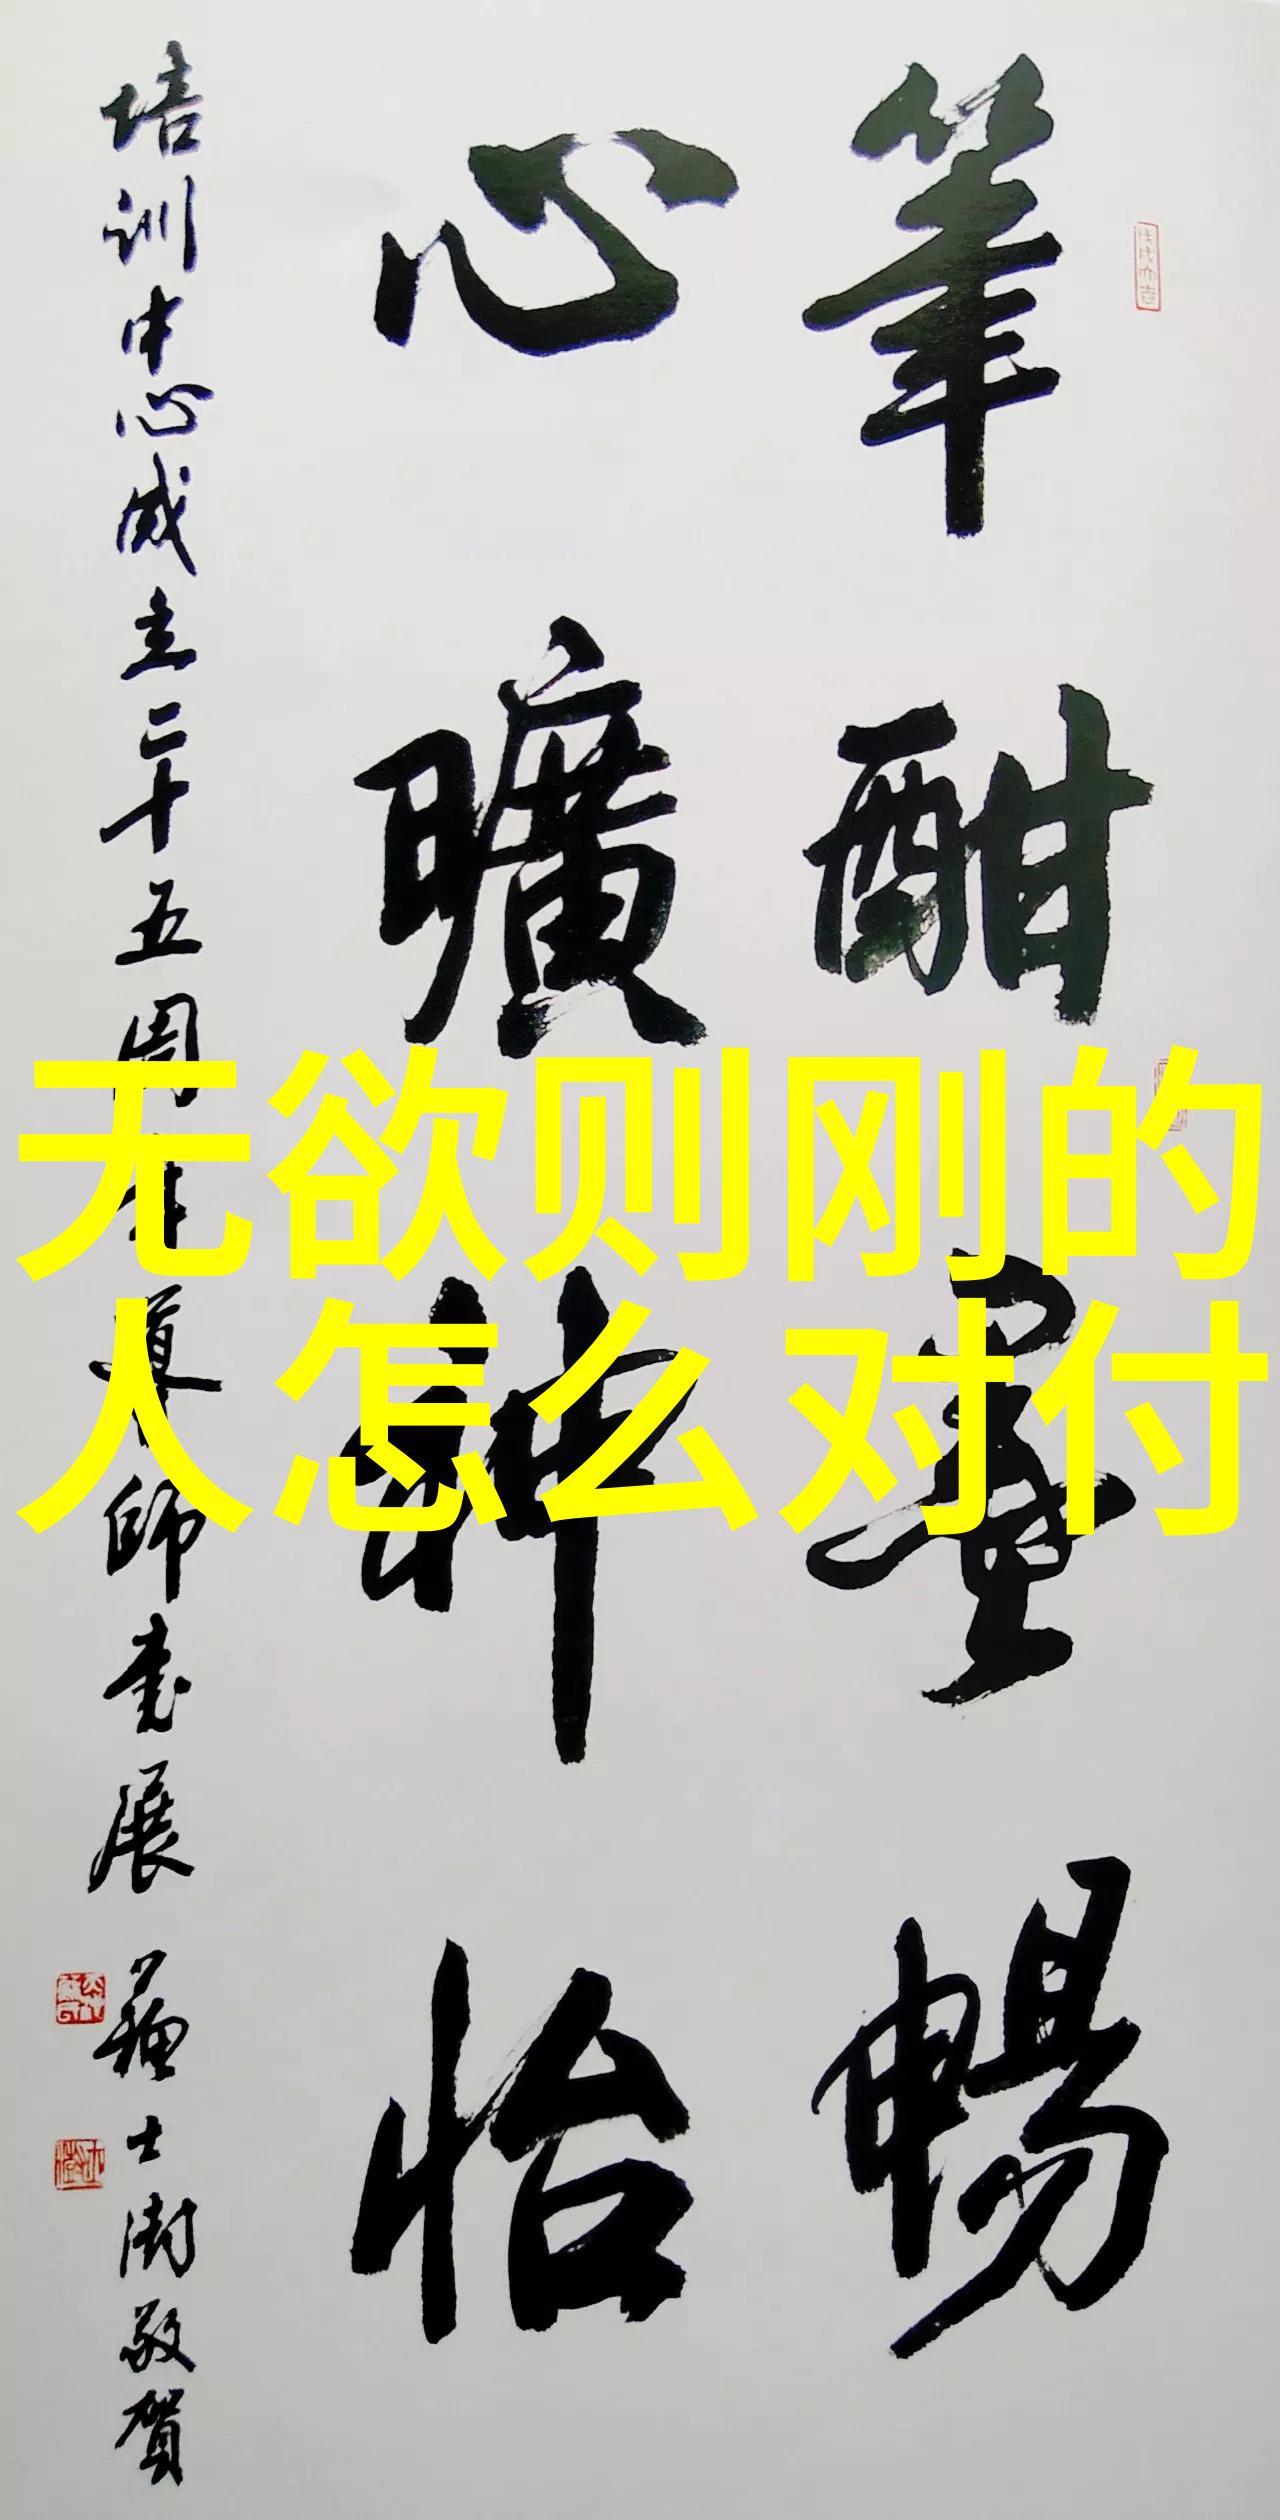 筆酣墨暢
心曠神怡
培训中心成立二十五周年導師書展
苏士澍敬贺
无欲则刚的
人怎么对付